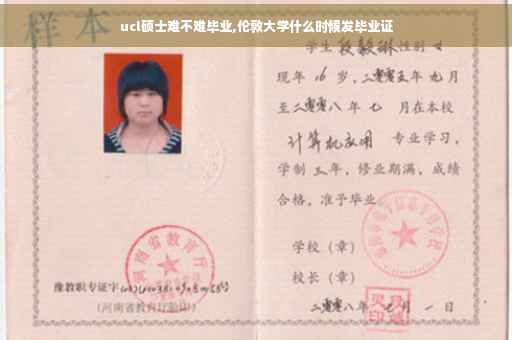 ucl硕士难不难毕业,伦敦大学什么时候发毕业证
样本
学生 段毅琳 性别 女
现年 16 岁，二零零五年九月
至二零零八年七 月在本校
计算机应用 专业学习，
学制三年，修业期满，成绩
合格，准予毕业
学校（章）
校长（章）
二零零八年 七 月 一 日
河南省教育厅
豫教职专证字
（河南省教育厅验印）